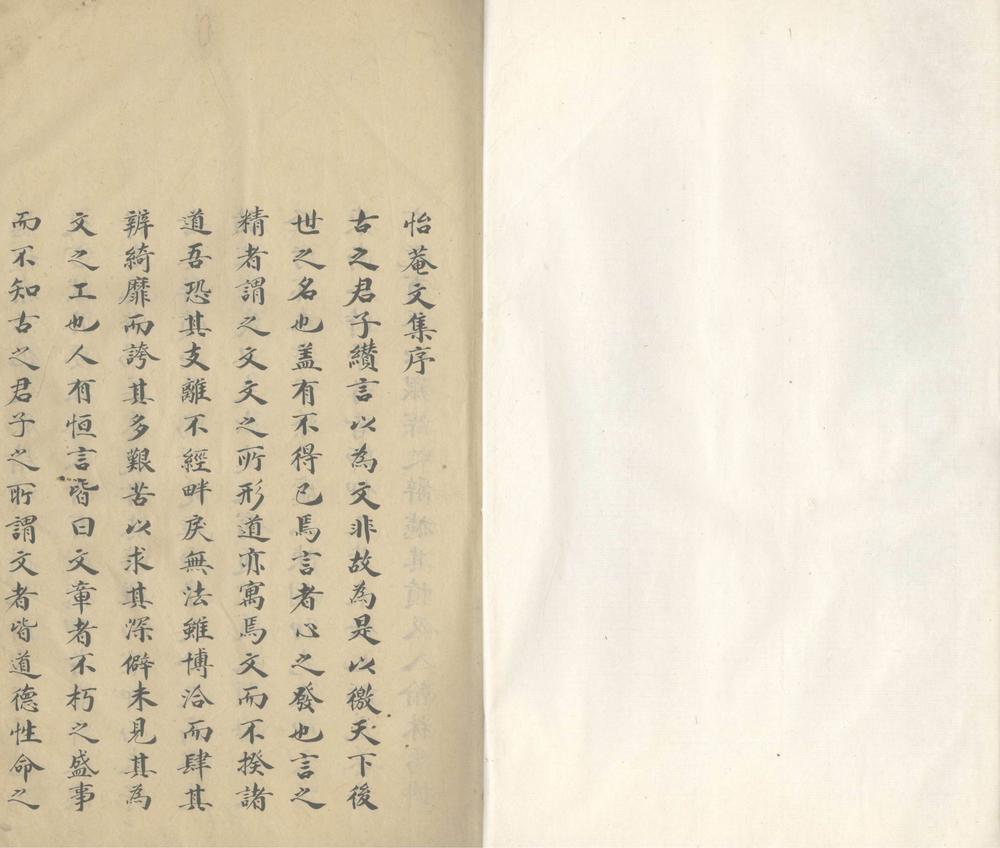 怡菴文集序
古之君子纘言以為文非故為是以徼天下後
世之名也盖有不得已焉言者心之發也言之
精者謂之文文之所形道亦寓焉文而不揆諸
道吾恐其支離不經畔戾無法雖博洽而肆其
辨綺靡而誇其多艱苦以求其深僻未見其為
文之工也人有恒言皆曰文章者不朽之盛事
而不知古之君子之所謂文者皆道德性命之